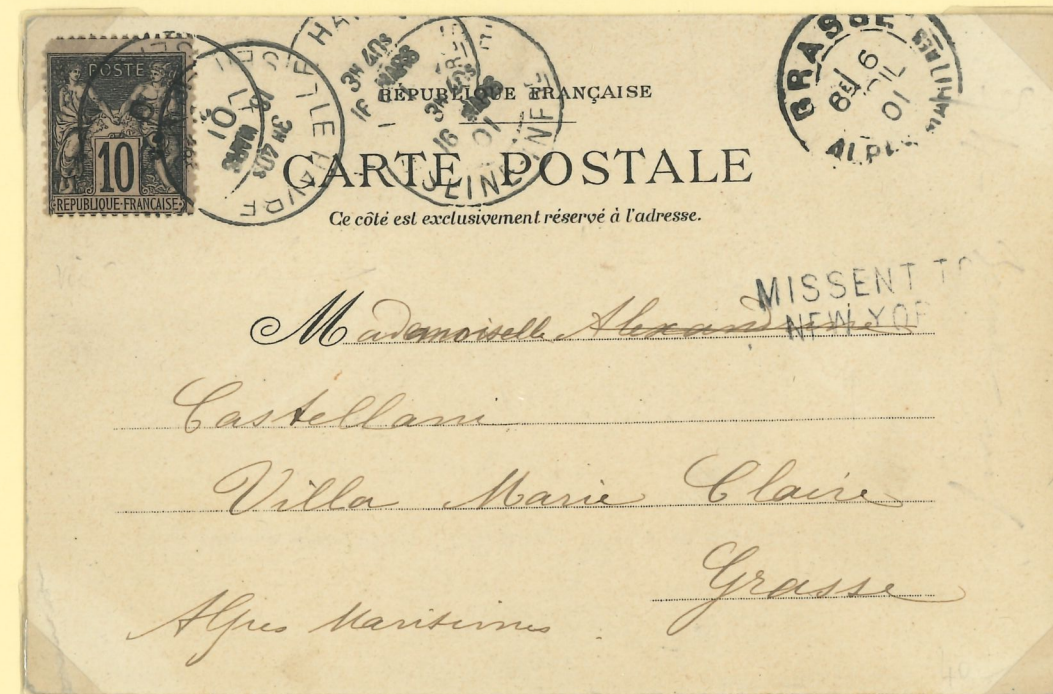 POSTE
10
REPUBLIQUE-FRANÇAISE
LE HAVRE
3E 40S
16
MARS
01
16
MARS
01
GRASSE
8E
6
01
ALPES MARITIMES
RÉPUBLIQUE FRANÇAISE
CARTE POSTALE
Ce côté est exclusivement réservé à l'adresse.
MISSENT TO
NEW YOR
Mademoiselle Alexandrine
Castellani
Villa Marie Claire
Grasse
Alpes Maritimes